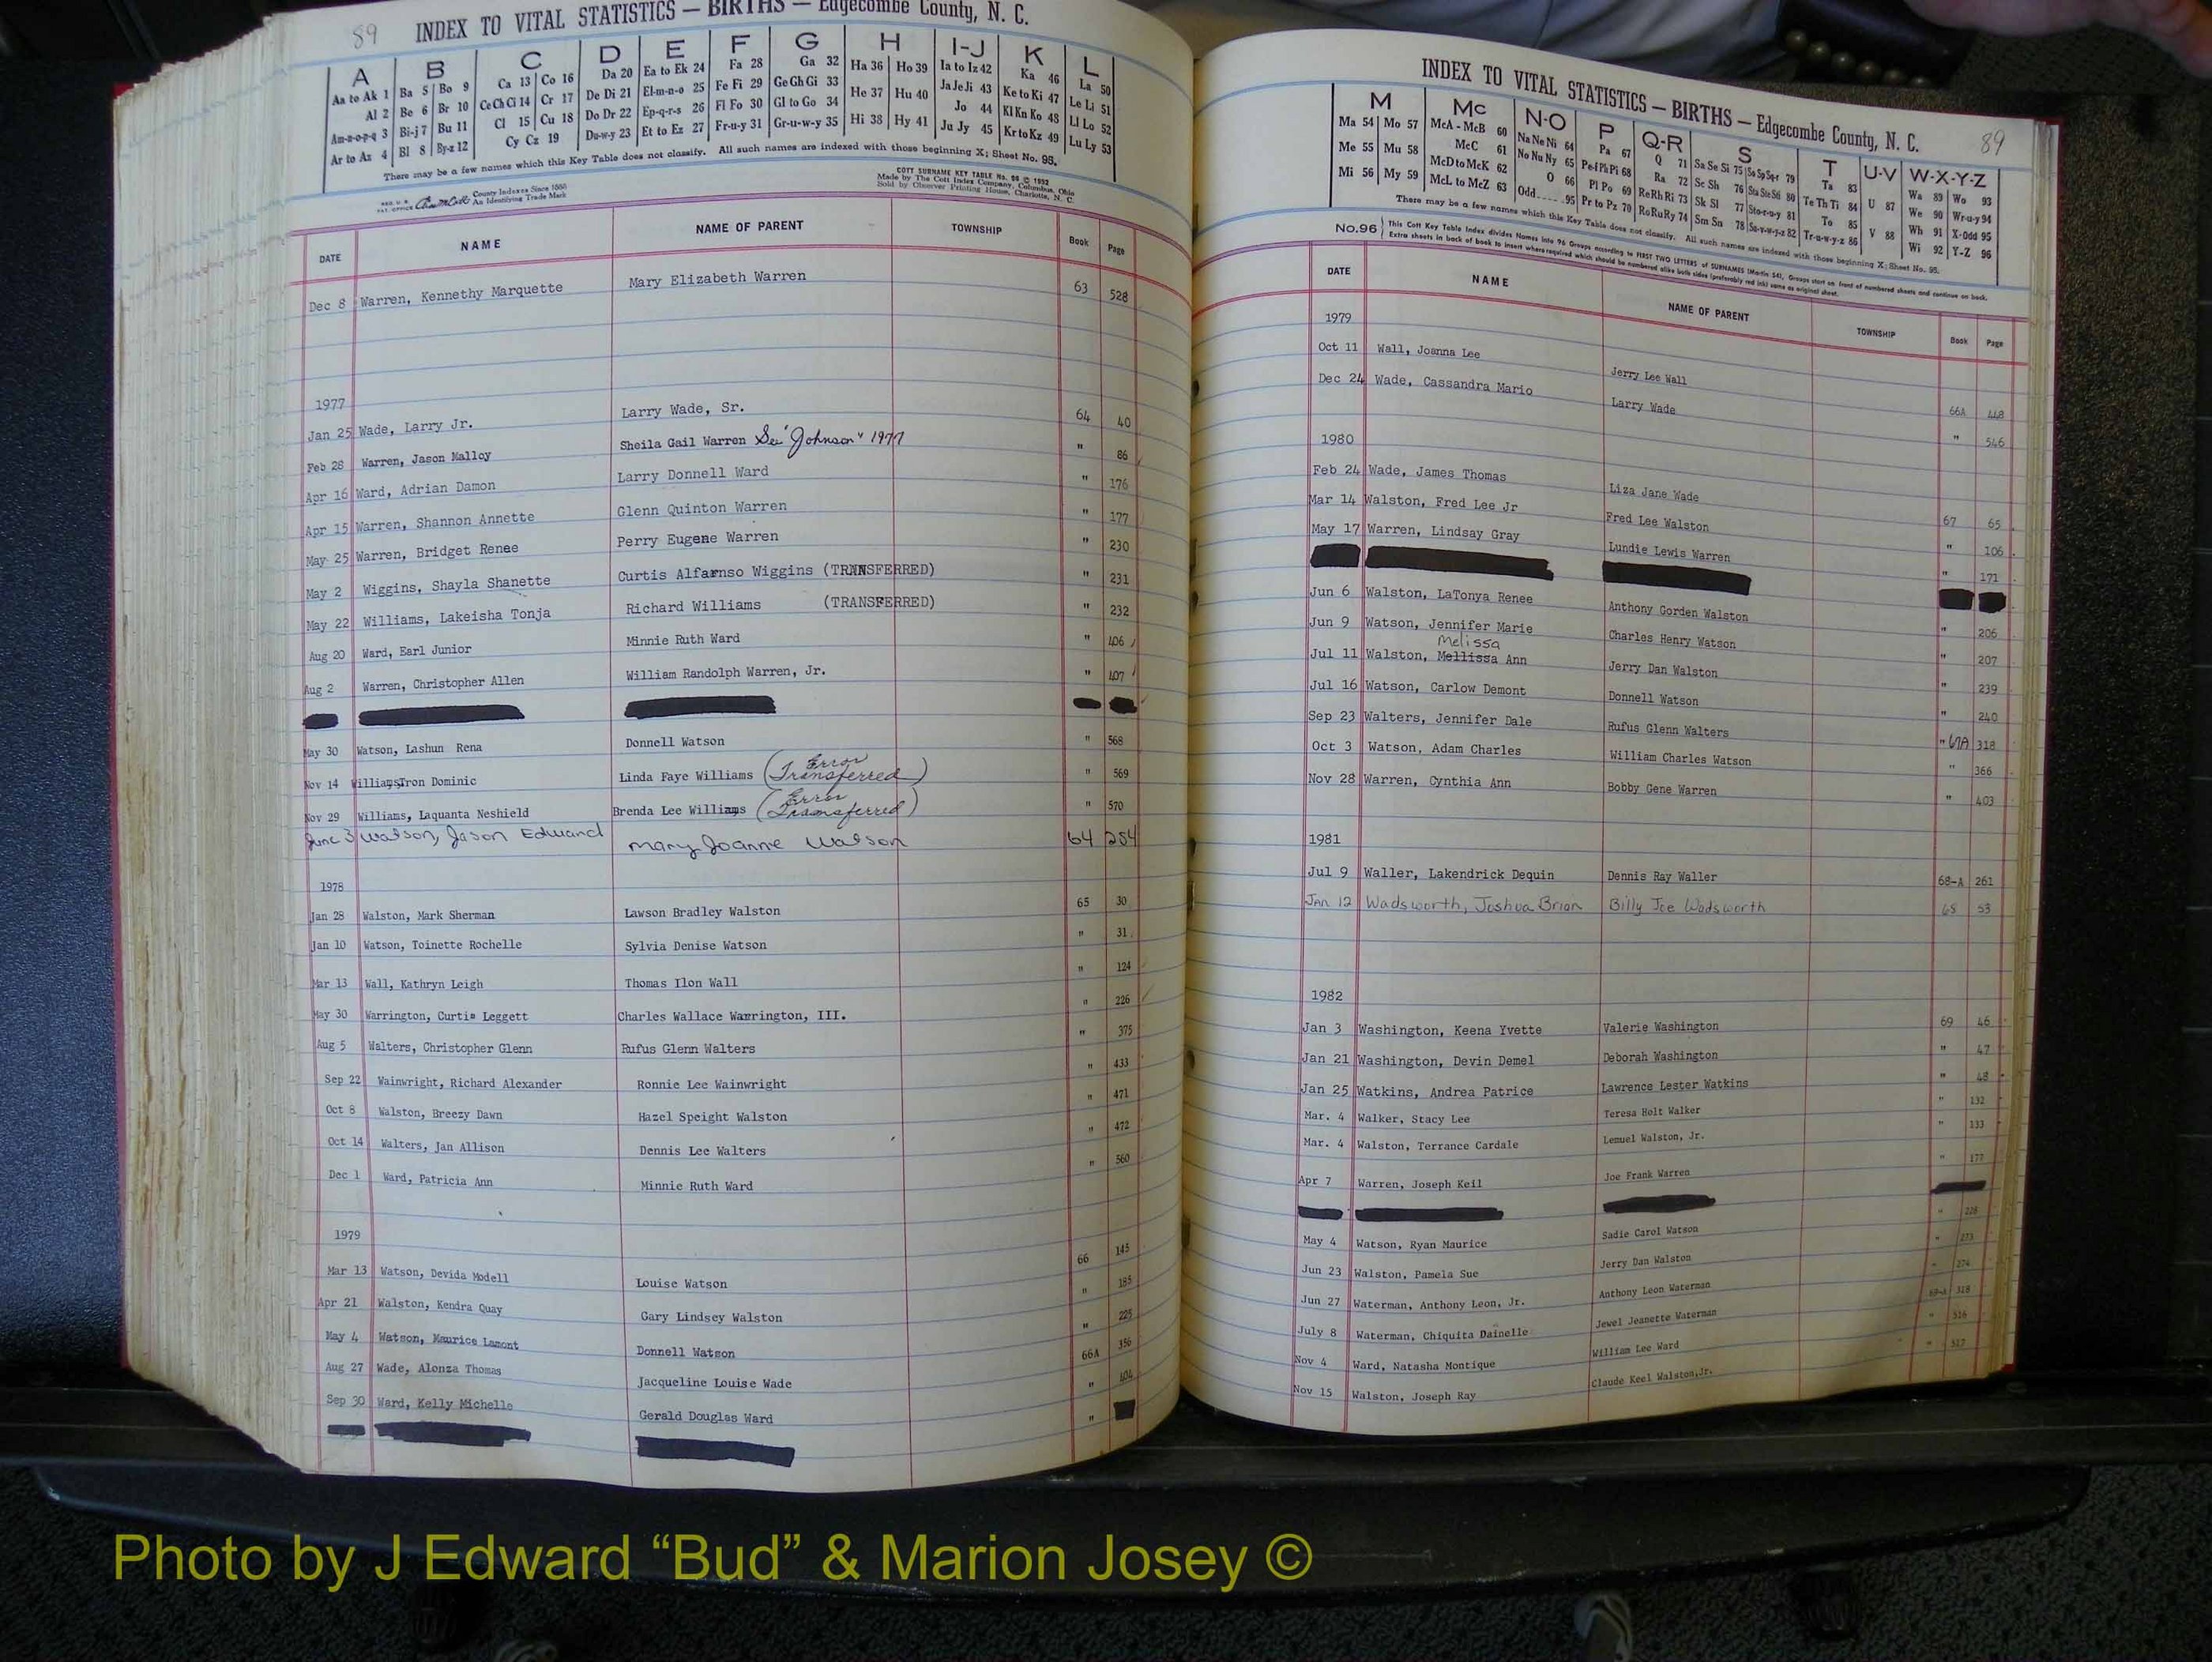 89
INDEX TO VITAL STATISTICS — BIRTHS — Edgecombe County, N. C.
A B C D E F G H I-J K L
Aa to Ak 1 Ba 5 Bo 9 Ca 13 Co 16 Da 20 Ea to Ek 24 Fa 28 Ga 32 Ha 36 Ho 39 Ia to Iz 42 Ka 46 La 50
Al 2 Be 6 Br 10 Ce Ch Ci 14 Cr 17 De Di 21 El-m-n-o 25 Fe Fi 29 Ge Gh Gi 33 He 37 Hu 40 Ja Je Ji 43 Ke to Ki 47 Le Li 51
Am-n-o-p-q 3 Bi-j 7 Bu 11 Cl 15 Cu 18 Do Dr 22 Ep-q-r-s 26 Fl Fo 30 Gl to Go 34 Hi 38 Hy 41 Jo 44 Kl Kn Ko 48 Ll Lo 52
Ar to Az 4 Bl 8 By-z 12 Cy Cz 19 Du-w-y 23 Et to Ez 27 Fr-u-y 31 Gr-u-w-y 35 Ju Jy 45 Kr to Kz 49 Lu Ly 53
There may be a few names which this Key Table does not classify. All such names are indexed with those beginning X; Sheet No. 95.
County Indexes Since 1888
An Identifying Trade Mark
COTT SURNAME KEY TABLE No. 96 © 1952
Made by The Cott Index Company, Columbus, Ohio
Sold by Observer Printing House, Charlotte, N. C.
DATE NAME NAME OF PARENT TOWNSHIP Book Page
Dec 8 Warren, Kennethy Marquette Mary Elizabeth Warren 63 528
1977
Jan 25 Wade, Larry Jr. Larry Wade, Sr. 64 40
Feb 28 Warren, Jason Malloy Sheila Gail Warren See "Johnson" 1977 " 86
Apr 16 Ward, Adrian Damon Larry Donnell Ward " 176
Apr 15 Warren, Shannon Annette Glenn Quinton Warren " 177
May 25 Warren, Bridget Renee Perry Eugene Warren " 230
May 2 Wiggins, Shayla Shanette Curtis Alfarnso Wiggins (TRANSFERRED) " 231
May 22 Williams, Lakeisha Tonja Richard Williams (TRANSFERRED) " 232
Aug 20 Ward, Earl Junior Minnie Ruth Ward " 406
Aug 2 Warren, Christopher Allen William Randolph Warren, Jr. " 407
May 30 Watson, Lashun Rena Donnell Watson " 568
Nov 14 Williams, Tron Dominic Linda Faye Williams (Error Transferred) " 569
Nov 29 Williams, Laquanta Neshield Brenda Lee Williams (Error Transferred) " 570
June 3 Watson, Jason Edward Mary Joanne Watson 64 254
1978
Jan 28 Walston, Mark Sherman Lawson Bradley Walston 65 30
Jan 10 Watson, Toinette Rochelle Sylvia Denise Watson " 31
Mar 13 Wall, Kathryn Leigh Thomas Ilon Wall " 124
May 30 Warrington, Curtis Leggett Charles Wallace Warrington, III. " 226
Aug 5 Walters, Christopher Glenn Rufus Glenn Walters " 375
Sep 22 Wainwright, Richard Alexander Ronnie Lee Wainwright " 433
Oct 8 Walston, Breezy Dawn Hazel Speight Walston " 471
Oct 14 Walters, Jan Allison Dennis Lee Walters " 472
Dec 1 Ward, Patricia Ann Minnie Ruth Ward " 560
1979
Mar 13 Watson, Devida Modell Louise Watson 66 145
Apr 21 Walston, Kendra Quay Gary Lindsey Walston " 185
May 4 Watson, Maurice Lamont Donnell Watson " 225
Aug 27 Wade, Alonza Thomas Jacqueline Louise Wade 66A 356
Sep 30 Ward, Kelly Michelle Gerald Douglas Ward " 404
"
INDEX TO VITAL STATISTICS — BIRTHS — Edgecombe County, N. C. 89
M Mc N-O P Q-R S T U-V W-X-Y-Z
Ma 54 Mo 57 McA - McB 60 Na Ne Ni 64 Pa 67 Q 71 Sa Se Si 75 So Sp Sq-r 79 Ta 83 U 87 Wa 89 Wo 93
Me 55 Mu 58 McC 61 No Nu Ny 65 Pe-f Ph Pi 68 Ra 72 Sc Sh 76 Sta Ste Sti 80 Te Th Ti 84 V 88 We 90 Wr-u-y 94
Mi 56 My 59 McD to McK 62 O 66 Pl Po 69 Re Rh Ri 73 Sk Sl 77 Sto-r-u-y 81 To 85 Wh 91 X-Odd 95
McL to McZ 63 Odd 95 Pr to Pz 70 Ro Ru Ry 74 Sm Sn 78 Ss-v-w-y-z 82 Tr-u-w-y-z 86 Wi 92 Y-Z 96
There may be a few names which this Key Table does not classify. All such names are indexed with those beginning X; Sheet No. 95.
No.96 This Cott Key Table Index divides Names into 96 Groups according to FIRST TWO LETTERS of SURNAMES (Martin 54). Groups start on front of numbered sheets and continue on back.
Extra sheets in back of book to insert where required which should be numbered alike both sides (preferably red ink) same as original sheet.
DATE NAME NAME OF PARENT TOWNSHIP Book Page
1979
Oct 11 Wall, Joanna Lee Jerry Lee Wall 66A 448
Dec 24 Wade, Cassandra Mario Larry Wade " 546
1980
Feb 24 Wade, James Thomas Liza Jane Wade 67 65
Mar 14 Walston, Fred Lee Jr Fred Lee Walston " 106
May 17 Warren, Lindsay Gray Lundie Lewis Warren " 171
Jun 6 Walston, LaTonya Renee Anthony Gorden Walston " 206
Jun 9 Watson, Jennifer Marie Charles Henry Watson " 207
Melissa
Jul 11 Walston, Mellissa Ann Jerry Dan Walston " 239
Jul 16 Watson, Carlow Demont Donnell Watson " 240
Sep 23 Walters, Jennifer Dale Rufus Glenn Walters " 67A 318
Oct 3 Watson, Adam Charles William Charles Watson " 366
Nov 28 Warren, Cynthia Ann Bobby Gene Warren " 403
1981
Jul 9 Waller, Lakendrick Dequin Dennis Ray Waller 68-A 261
Jan 12 Wadsworth, Joshua Brian Billy Joe Wadsworth 68 53
1982
Jan 3 Washington, Keena Yvette Valerie Washington 69 46
Jan 21 Washington, Devin Demel Deborah Washington " 47
Jan 25 Watkins, Andrea Patrice Lawrence Lester Watkins " 48
Mar. 4 Walker, Stacy Lee Teresa Holt Walker " 132
Mar. 4 Walston, Terrance Cardale Lemuel Walston, Jr. " 133
Apr 7 Warren, Joseph Keil Joe Frank Warren " 177
May 4 Watson, Ryan Maurice Sadie Carol Watson " 228
Jun 23 Walston, Pamela Sue Jerry Dan Walston " 273
Jun 27 Waterman, Anthony Leon, Jr. Anthony Leon Waterman " 274
July 8 Waterman, Chiquita Dainelle Jewel Jeanette Waterman 69-A 318
Nov 4 Ward, Natasha Montique William Lee Ward " 516
Nov 15 Walston, Joseph Ray Claude Keel Walston, Jr. " 517
Photo by J Edward “Bud” & Marion Josey ©